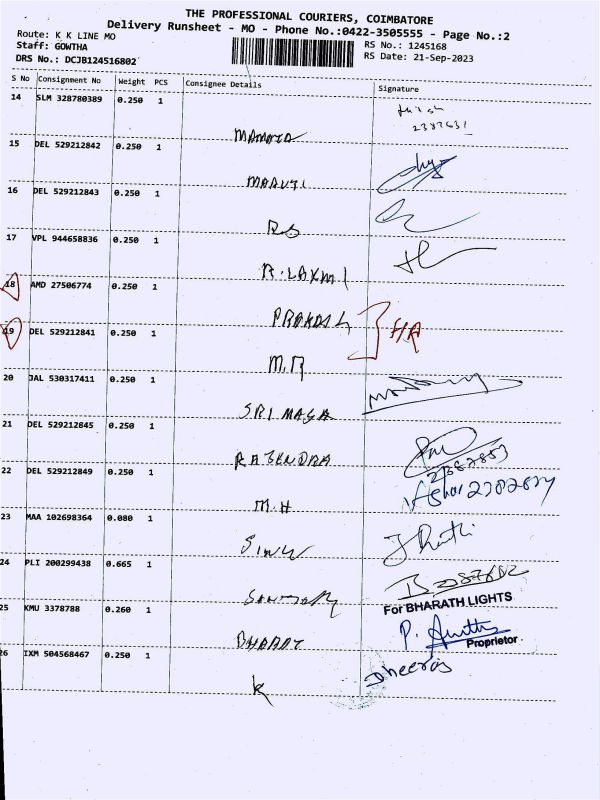 THE PROFESSIONAL COURIERS, COIMBATORE
Delivery Runsheet - MO - Phone No.:0422-3505555 - Page No.:2
Route: K K LINE MO
RS No.: 1245168
Staff: GOWTHA
RS Date: 21-Sep-2023
DRS No.: DCJB124516802
S No Consignment No Weight PCS Consignee Details Signature
14 SLM 328780389 0.250 1
MAMATA
15 DEL 529212842 0.250 1
MARUTI
16 DEL 529212843 0.250 1
RS
17 VPL 944658836 0.250 1
R.LAXMI
18 AMD 27506774 0.250 1
PRAKASH
19 DEL 529212841 0.250 1
M.M
20 JAL 530317411 0.250 1
SRI MASA
21 DEL 529212845 0.250 1
RAJENDRA
22 DEL 529212849 0.250 1
M.H
23 MAA 102698364 0.080 1
24 PLI 200299438 0.665 1
For BHARATH LIGHTS
25 KMU 3378788 0.260 1
Proprietor
BHARAT
26 IXM 504568467 0.250 1
Dheeraj
K